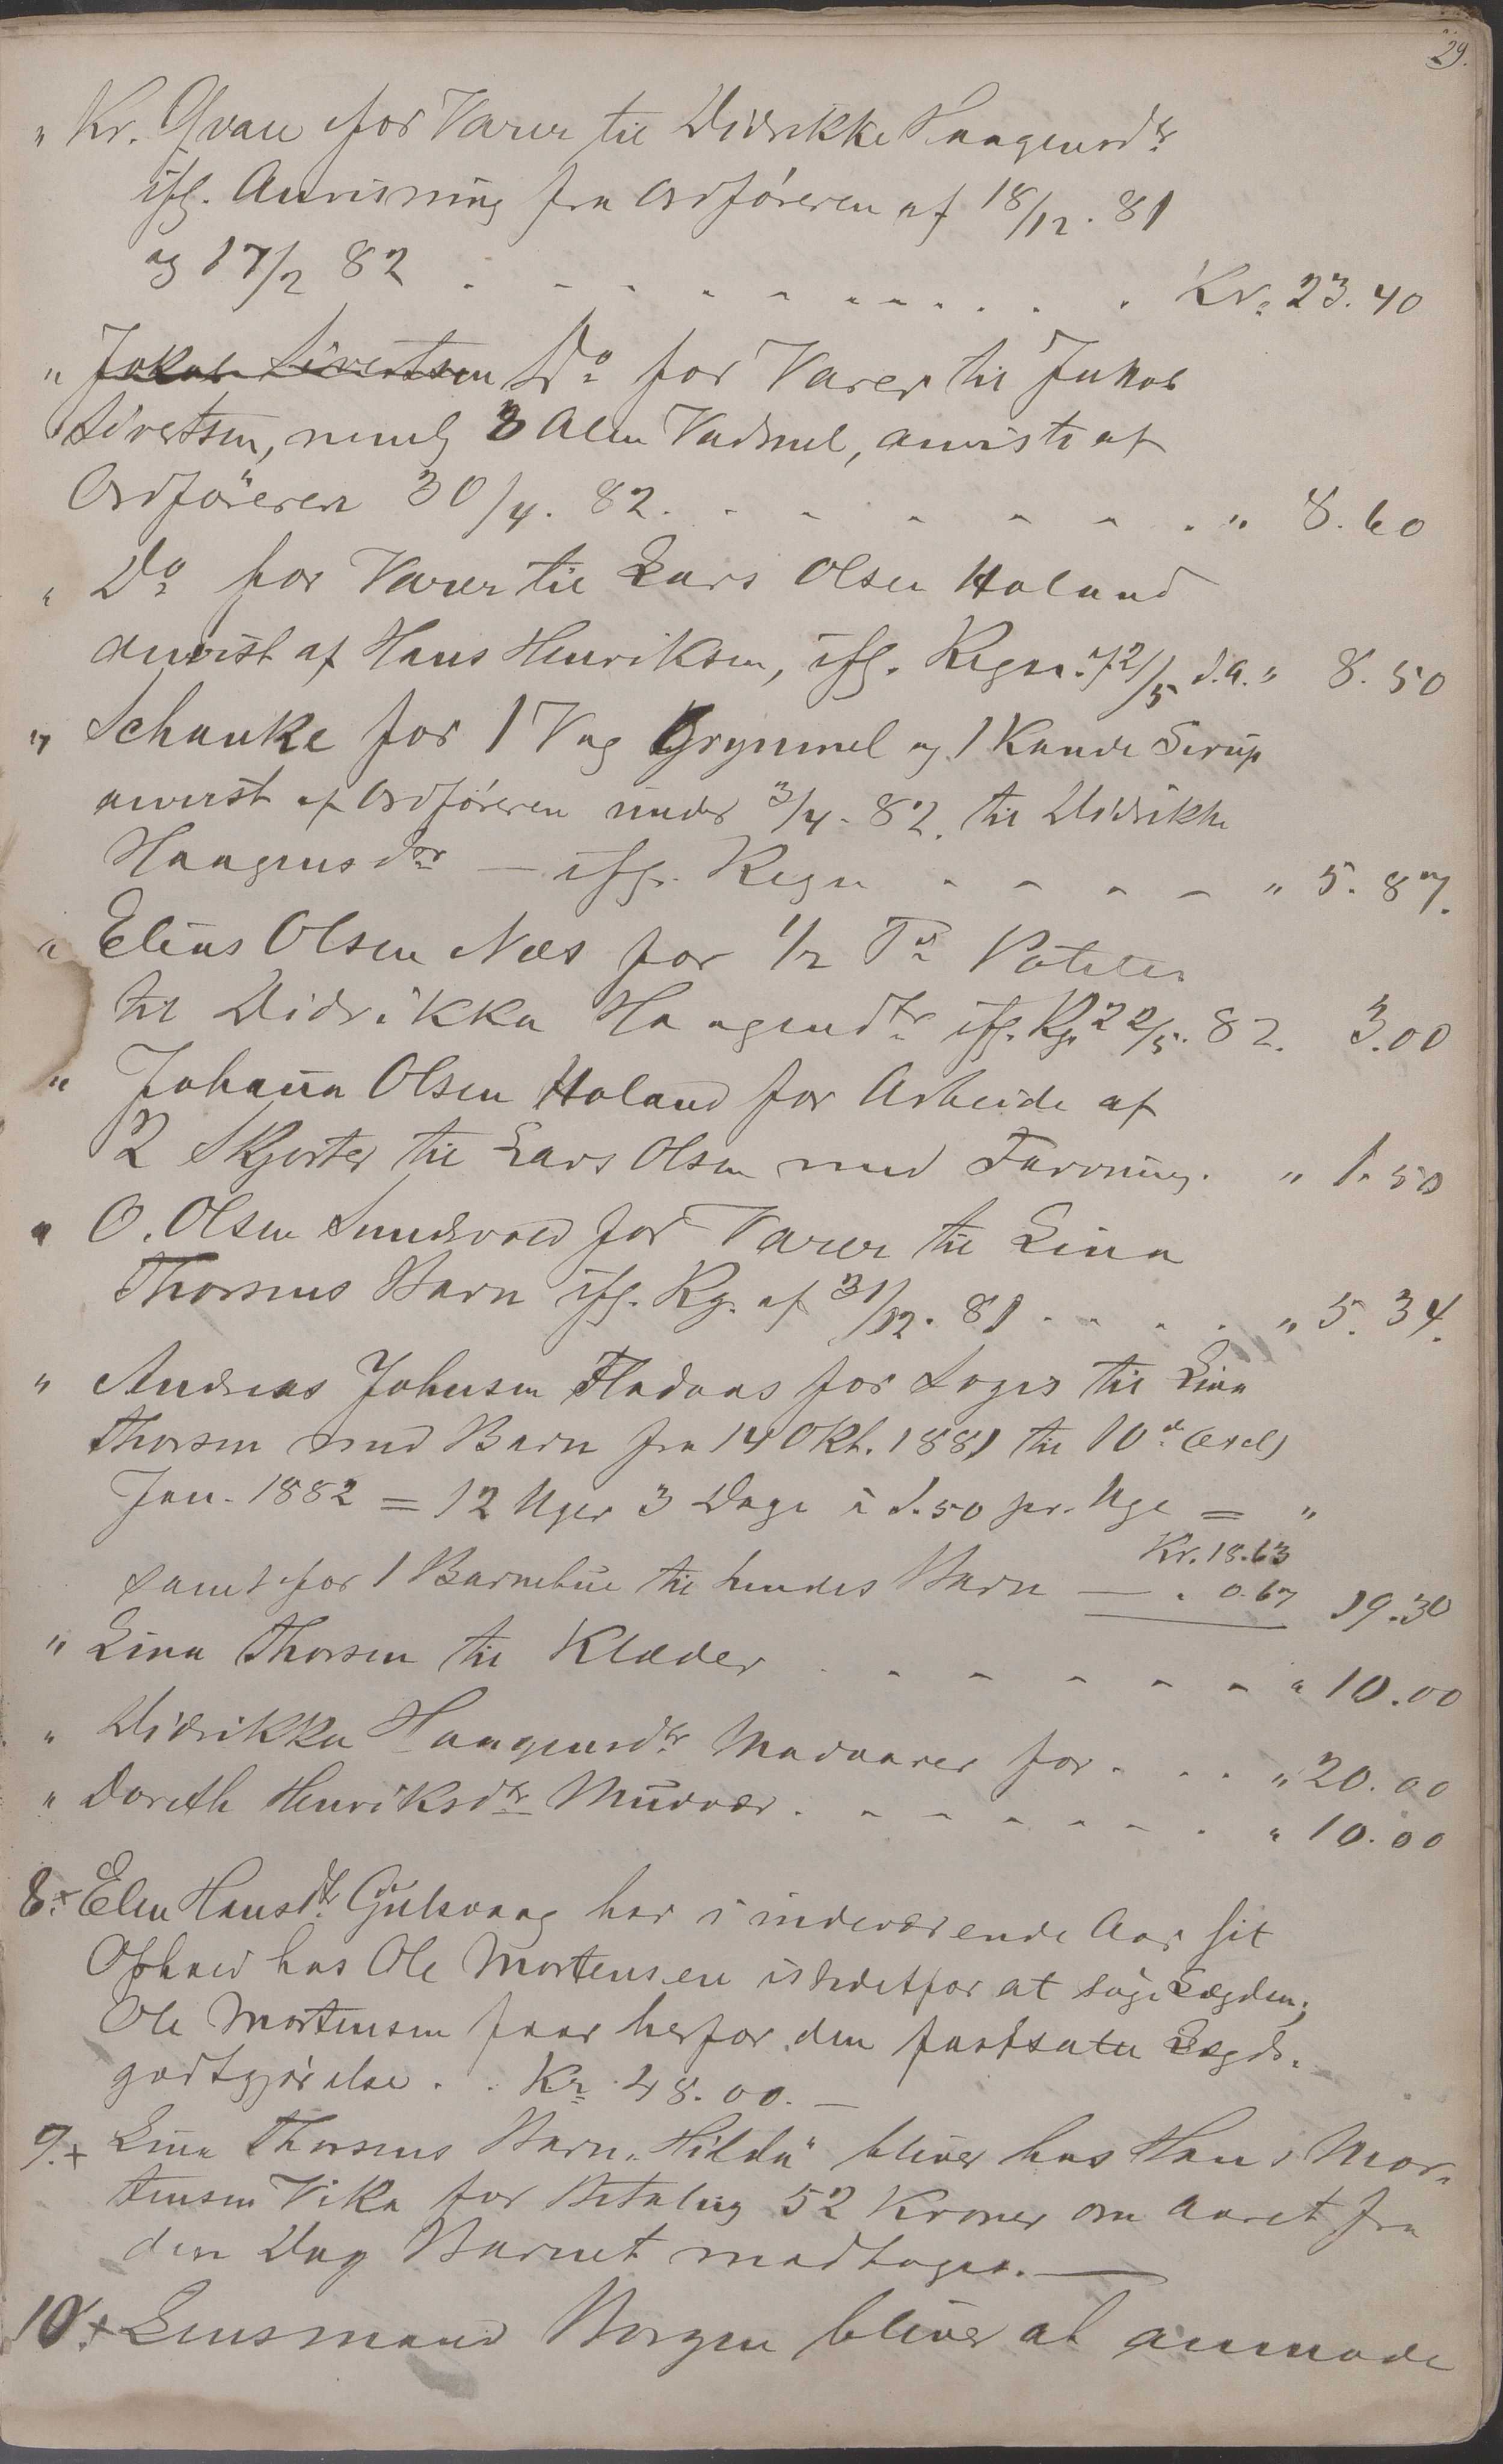 29.
" Kr. Qvale for Varer til Didrikke Haagensdtr
ifg. Anvisning fra Ordføreren af 18/12. 81
og 17/2 82 . . . . . . . . . . . Kr. 23.40
" Jakob Sivertsen Do for Varer til Jakob
Sivertsen, nemlig 3 Alen Vadmel, anviste af
Ordføreren 30/4. 82. . . . . . . . " 8.60
" Do for Varer til Lars Olsen Holand
anvist af Hans Henriksen, ifg. Regn. 12/5 d.a. " 8.50
" Schanke for 1 Vog Grynmel og 1 Kande Sirup
anvist af Ordføreren under 3/4. 82. til Didrikke
Haagensdtr — ifg. Regn . . . . " 5.87.
" Elias Olsen Næs for 1/2 Td Poteter
til Didrikka Haagensdtr ifg. Rg. 22/5. 82. 3.00
" Johanna Olsen Holand for Arbeide af
2 Skjorter til Lars Olsen med Farvning. " 1.50
" O. Olsen Sundsvold for Varer til Lina
Thorsens Barn ifg. Rg. af 31/12. 81 . . . . " 5.34.
" Andreas Johnsen Fladaas for Logis til Lina
Thorsen med Barn fra 14 Okt. 1881 til 10de (excl)
Jan. 1882 = 12 Uger 3 Dage à 1.50 pr. Uge = "
Kr. 18.63
samt for 1 Barnehue til hendes Barn — . 0.67 19.30
" Lina Thorsen til Klæder . . . . . . . " 10.00
" Didrikka Haagensdtr Madvarer for . . . " 20.00
" Doreth Henriksdtr Mudvær . . . . . . . " 10.00
8.+ Elen Hansdtr Gulsvaag har i indeværende Aar sit
Ophold hos Ole Mortensen istedetfor at søge Lægden;
Ole Mortensen faar herfor den fastsatte Lægds-
godtgjørelse . . Kr 48.00. —
9.+ Lina Thorsens Barn "Hilda" bliver hos Hans Mor-
tensen Vika for Betaling 52 Kroner om Aaret fra
den Dag Barnet modtages. —
10.+ Lensmand Borgen bliver at anmode